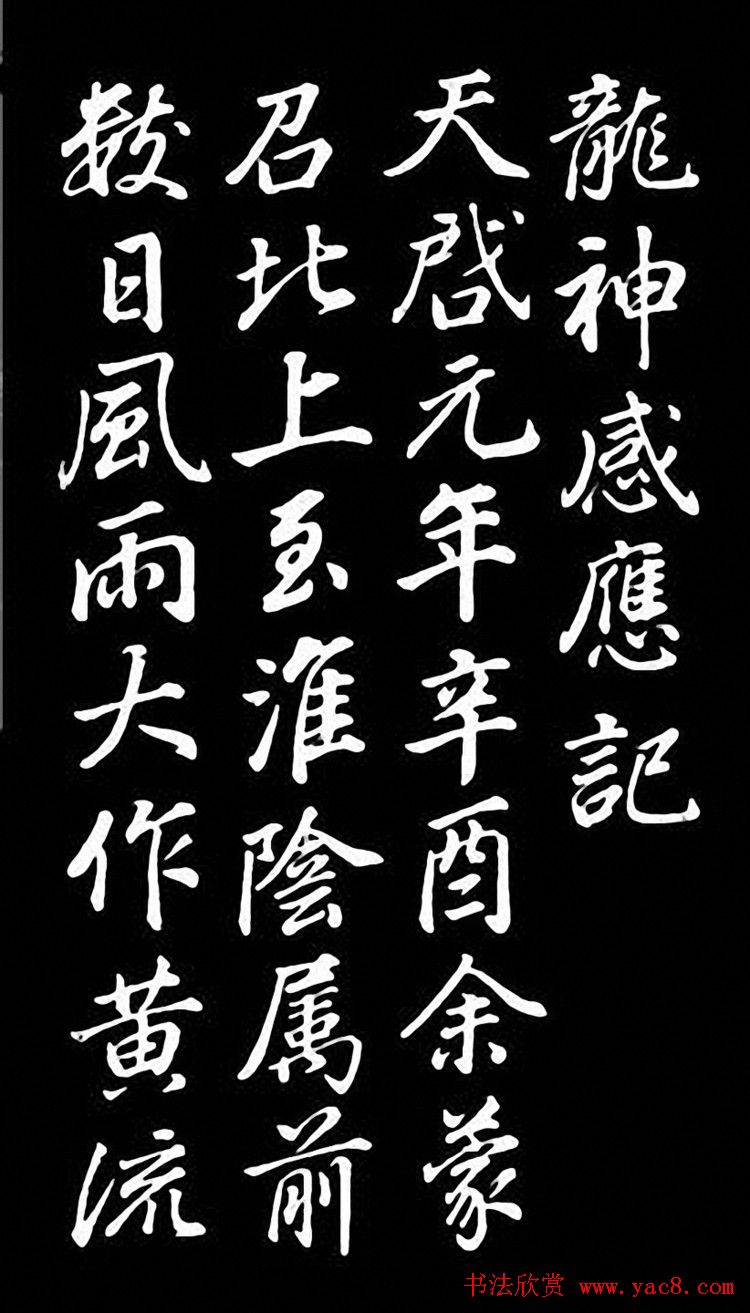 龍神感應記
天啟元年辛酉余蒙
召北上至淮陰属前
数日風雨大作黄流
书法欣赏 www.yac8.com